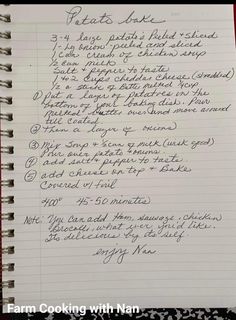 Potato bake
3-4 large potato's Peeled + sliced
1- Lg onion peeled and sliced
1 can cream of chicken soup
1/2 can milk
Salt + pepper to taste
1 to 2 cups cheddar cheese (shredded)
1/2 a stick of Butter melted 1/4 cup
① put a layer of potatoes on the
bottom of your baking dish. Pour
melted butter over and move around
till coated
② then a layer of onions
③ Mix Soup + 1/2 can of milk (mix good)
Pour over potato + onions
④ add salt + pepper to taste
⑤ add cheese on top + Bake
Covered w/foil
400° 45-50 minutes
Note: You Can add Ham, sausage, chicken
Broccoli, what ever you'd like.
Its delicious by its self.
enjoy Nan
Farm Cooking with Nan